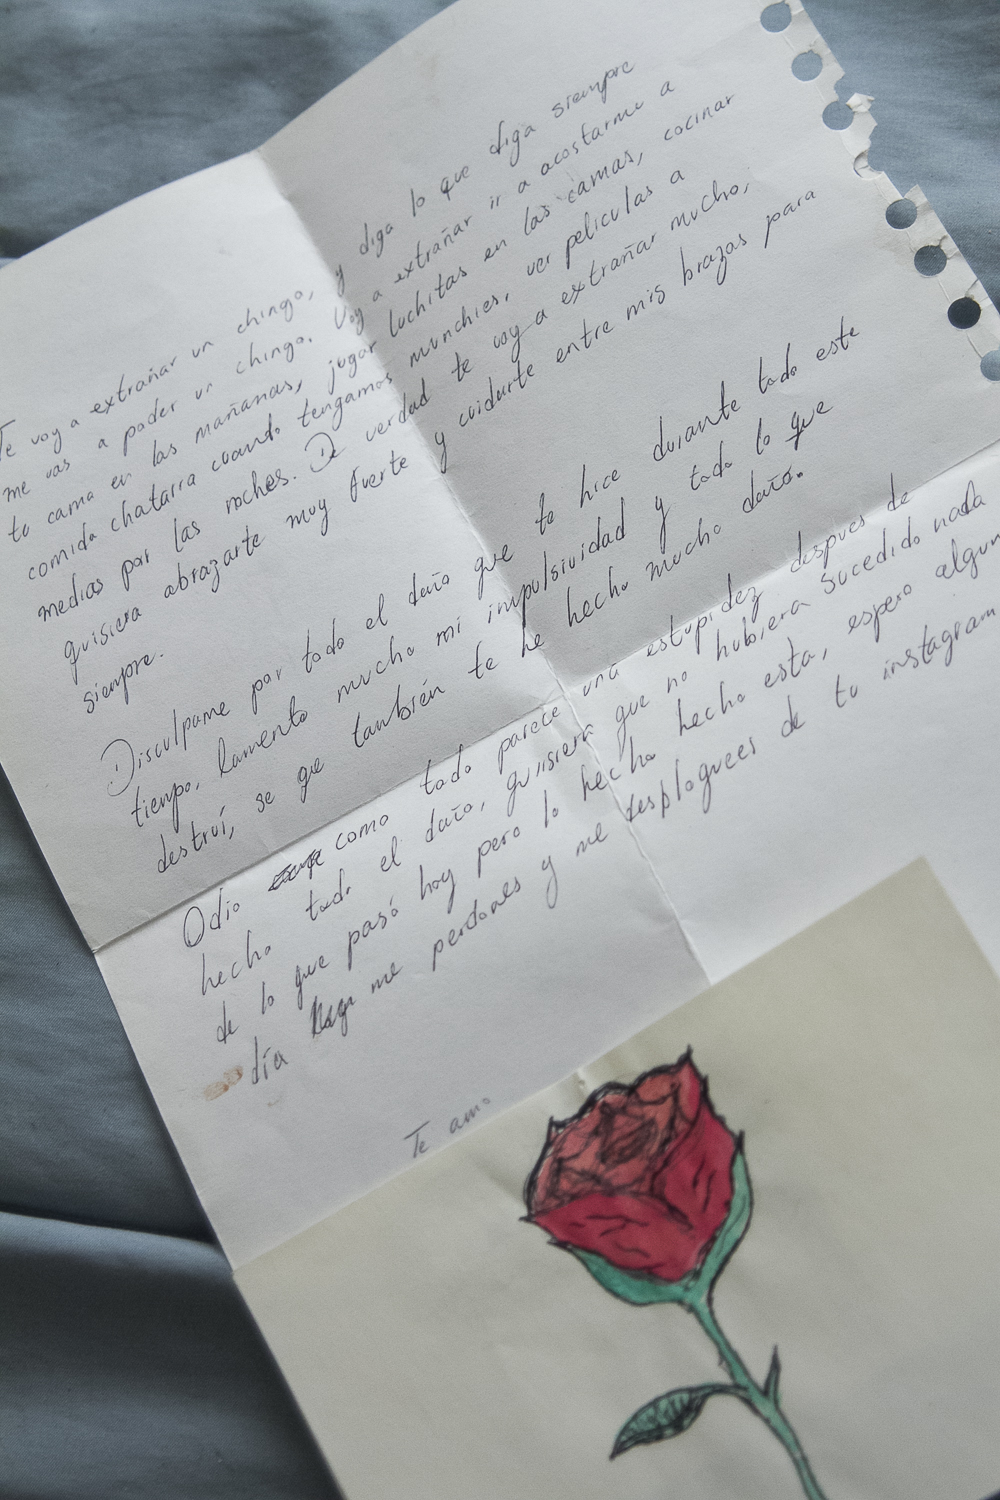 Te voy a extrañar un chingo, y diga lo que diga siempre
me vas a poder un chingo. Voy a extrañar ir a acostarme a
tu cama en las mañanas, jugar luchitas en las camas, cocinar
comida chatarra cuando tengamos munchies, ver peliculas a
medias por las noches. De verdad te voy a extrañar mucho,
quisiera abrazarte muy fuerte y cuidarte entre mis brazos para
siempre.
Disculpame por todo el daño que te hice durante todo este
tiempo, lamento mucho mi impulsividad y todo lo que
destruí, se que también te he hecho mucho daño.
Odio como todo parece una estupidez despues de
hecho todo el daño, quisiera que no hubiera sucedido nada
de lo que pasó hoy pero lo hecho hecho esta, espero algun
día me perdones y me desploquees de tu instagram
Te amo